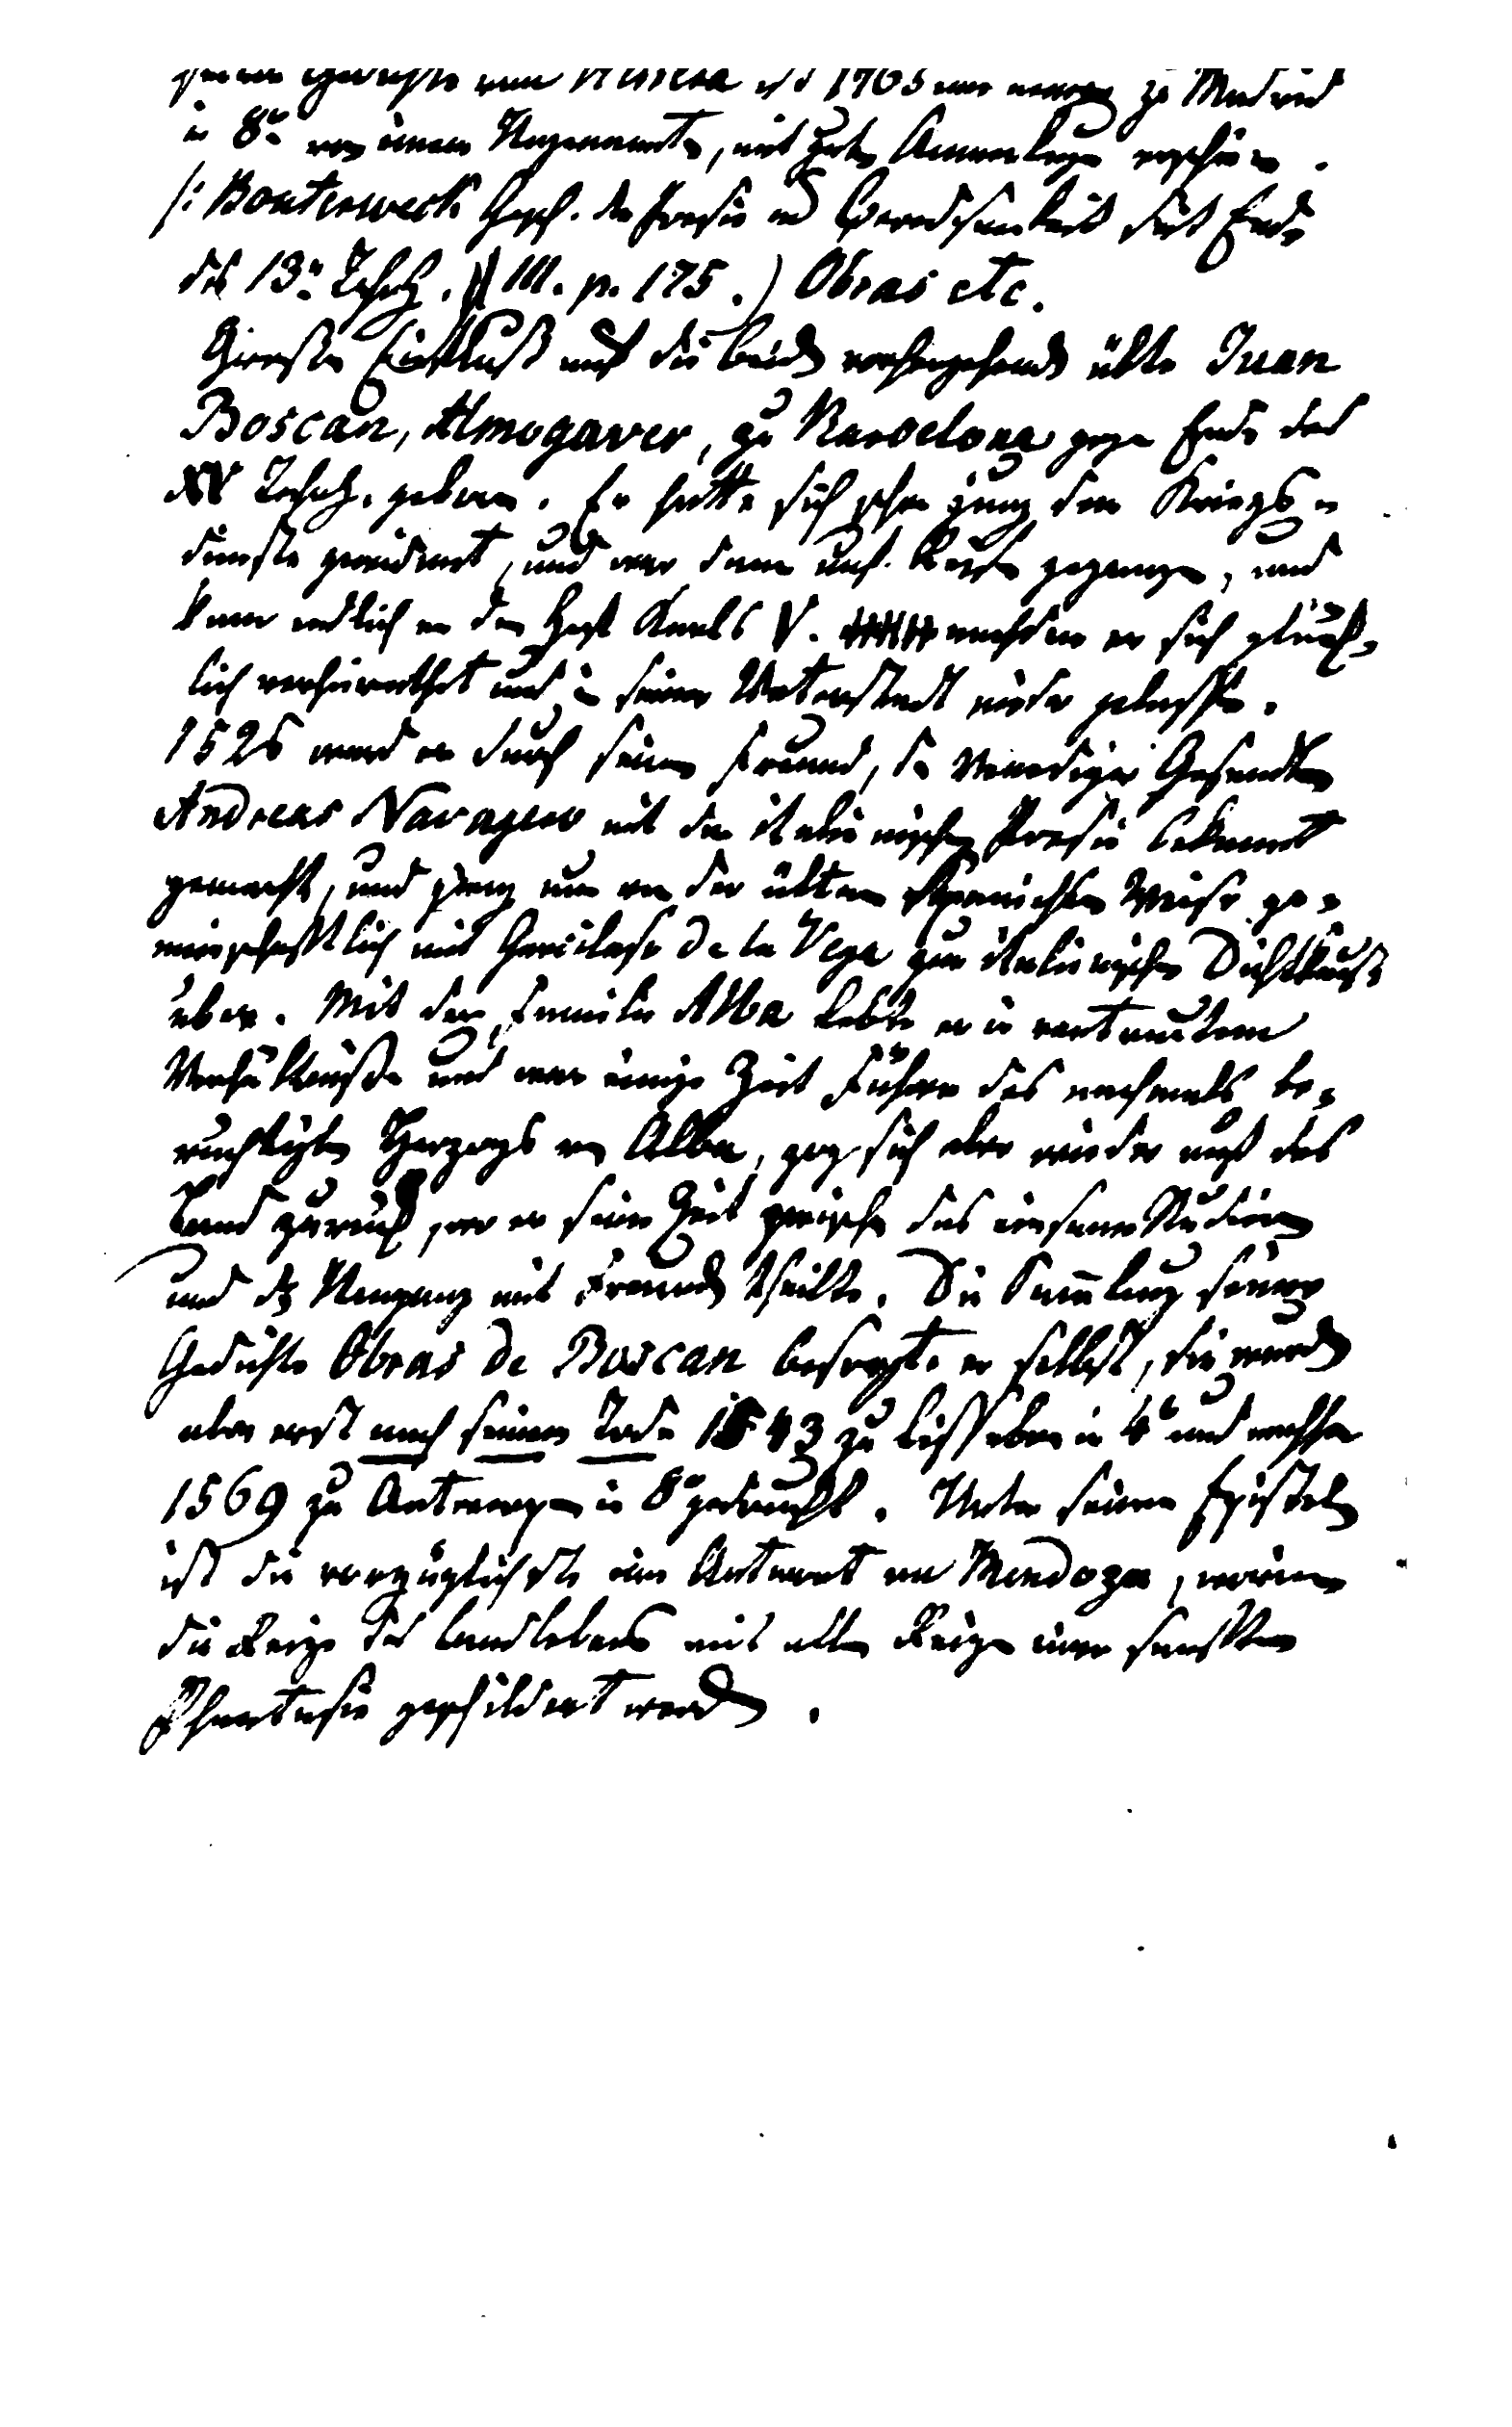 seine Gedichte von Herrera ist 1765 eine neue zu Madrid
in 8° von einem Ungenannten, mit guten Anmerkungen erschienen.
/: Bouterweck Gesch. der Poesie und Beredsamkeit seit Ende
des 13n Jahrh. III. p. 175.) Obras etc.
Großen Einfluß auf die beiden vorhergehenden übte Juan
Boscan, Almogaver, zu Barcelona gegen Ende des
XV Jahrh. geboren. Er hatte sich schon jung dem Kriegs=
dienste gewidmet, und war dann auf Reisen gegangen, und
kam endlich an den Hof Karls V. nachdem er sich glück=
lich verheirathet und in seiner Vaterstadt nieder gelassen.
1526 ward er durch seinen Freund, den Venediger Gesandten
Andreas Navagero mit der italienischen Poesie bekannt
gemacht, und ging nun von der ältern spanischen Weise ge=
meinschaftlich mit Garcilaso de la Vega zur italienischen Dichtkunst
über. Mit der Familie Alba lebte er in vertrautem
Verhältniße und war einige Zeit Führer des nachmals be=
rüchtigten Herzogs von Alba, zog sich aber wieder auf das
Land zurück, wo er seine Zeit zwischen das einsame Studium
und den Umgang mit Freunden theilte. Die Sammlung seiner
Gedichte Obras de Boscan besorgte er selbst, sie wurden
aber erst nach seinem Tode 1543 zu Lissabon in 4° und nachher
1569 zu Antwerpen in 8° gedruckt. Unter seinen Episteln
ist die vorzüglichste eine Antwort an Mendoza, worin
die Reize des Landlebens mit allen Reizen einer sanften
Phantasie geschildert werden.